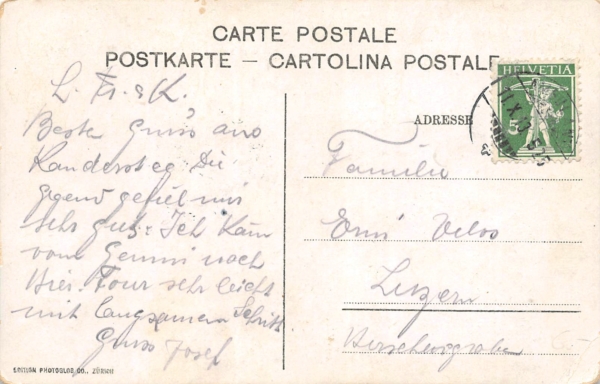 CARTE POSTALE
POSTKARTE – CARTOLINA POSTALE
HELVETIA
5
ADRESSE
L. Fr. & K.
Beste Gruss aus
Kandersteg. Die
Gegend gefiel mir
sehr gut. Ich kam
vom Gemmi nach
hier. Tour sehr leicht
mit langsamem Schritt
Gruss Josef
Familie
Velos
Luzern
EDITION PHOTOGLOB CO., ZÜRICH